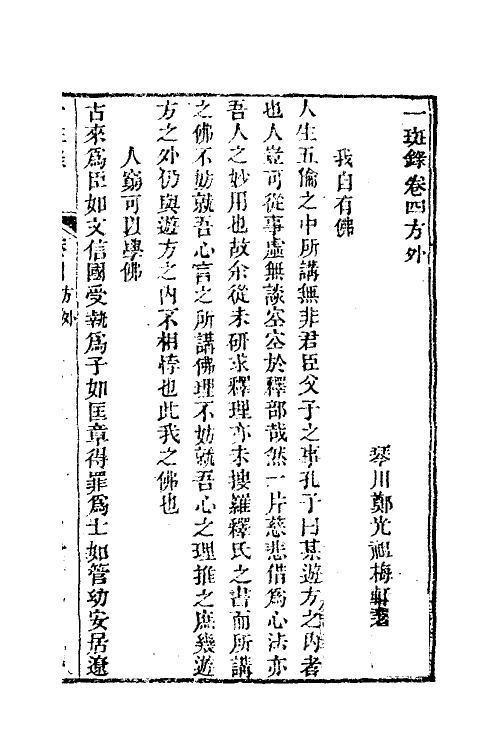 一斑錄卷四方外
琴川鄭光祖梅軒著
我自有佛
人生五倫之中所講無非君臣父子之事孔子曰某遊方之內者
也人豈可從事虛無談空空於釋部哉然一片慈悲借為心法亦
吾人之妙用也故余從未研求釋理亦未搜羅釋氏之書而所講
之佛不妨就吾心言之所講佛理不妨就吾心之理推之庶幾遊
方之外仍與遊方之內不相悖也此我之佛也
人窮可以學佛
古來為臣如文信國受執為子如匡章得罪為士如管幼安居遼
方外